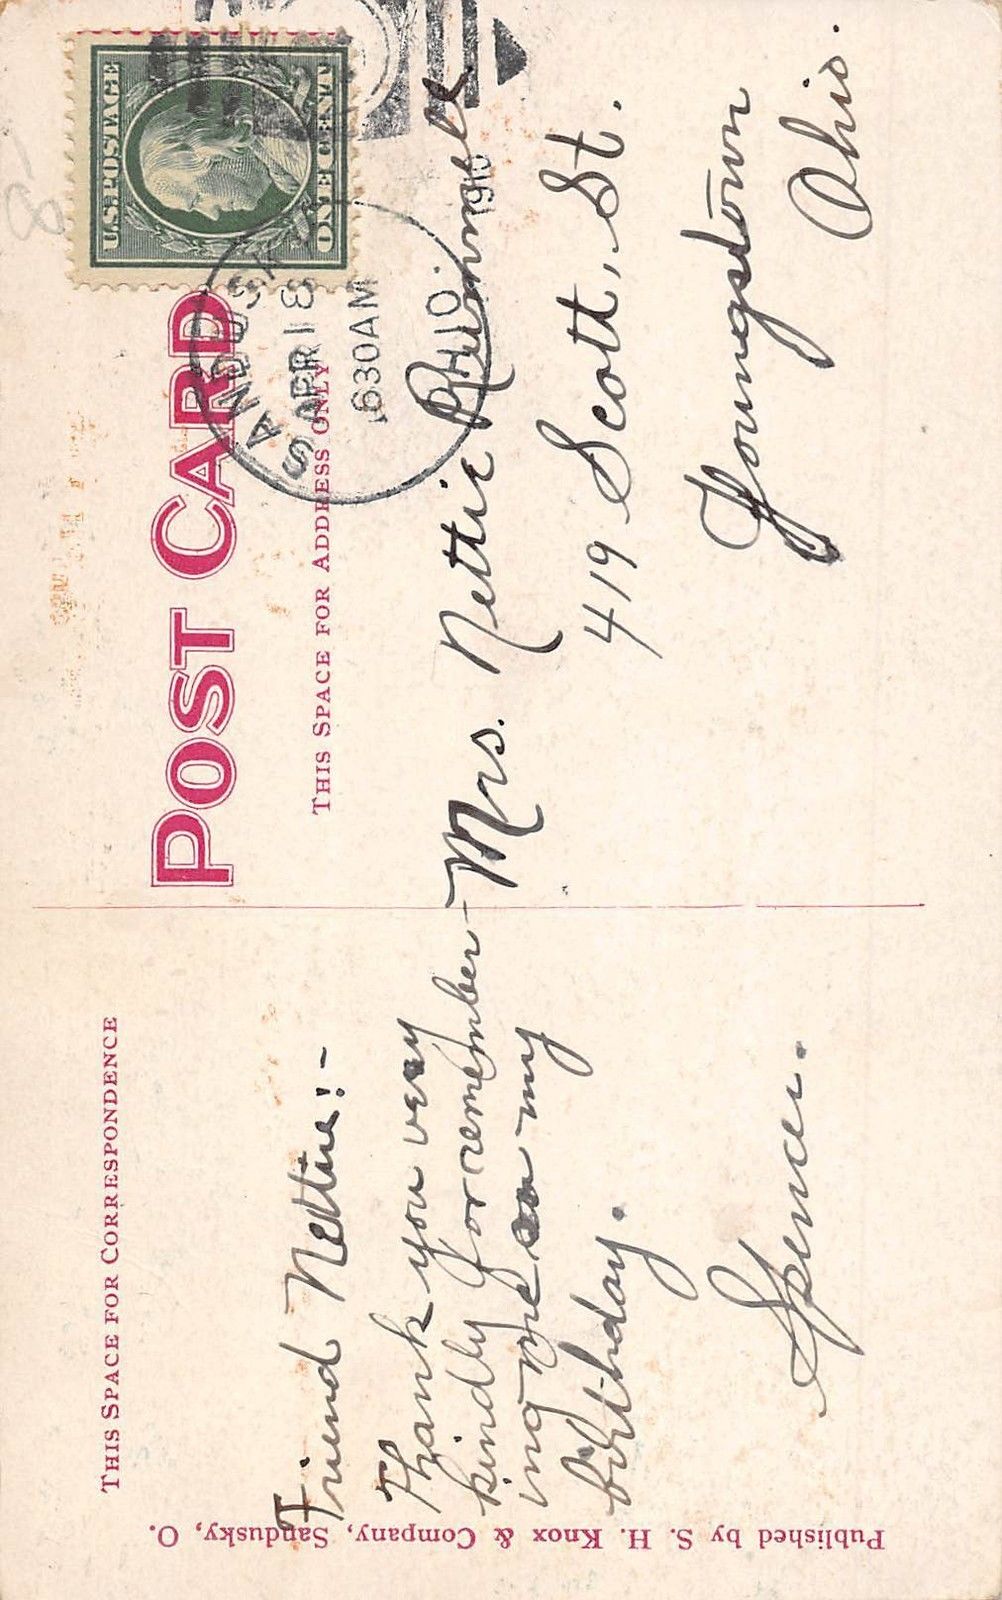 THIS SPACE FOR CORRESPONDENCE
POST CARD
THIS SPACE FOR ADDRESS ONLY
U.S. POSTAGE
ONE CENT
SANDUSKY
APR 18
630AM
1910
OHIO.
Friend Nettie:-
Thank you very
kindly for remember-
ing me on my
birthday.
Spence.
Mrs. Nettie
419 Scott, St.
Youngstown
Ohio.
Published by S. H. Knox & Company, Sandusky, O.